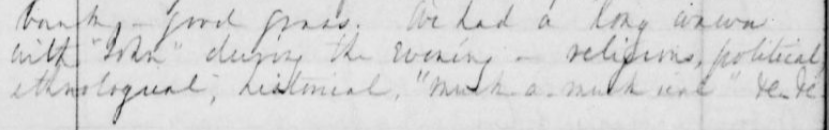 bank, - good grass. We had a long
with "John" during the evening - religious, political,
ethnological, historical, "much-a-muck-ical" &c &c